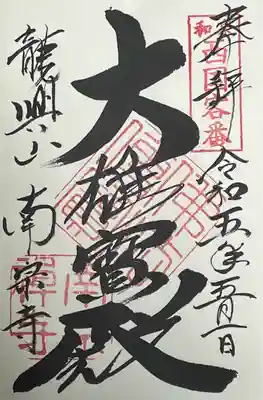 奉拝
和西国客番
令和五年五月一日
大雄寳殿
龍興山
南宗寺